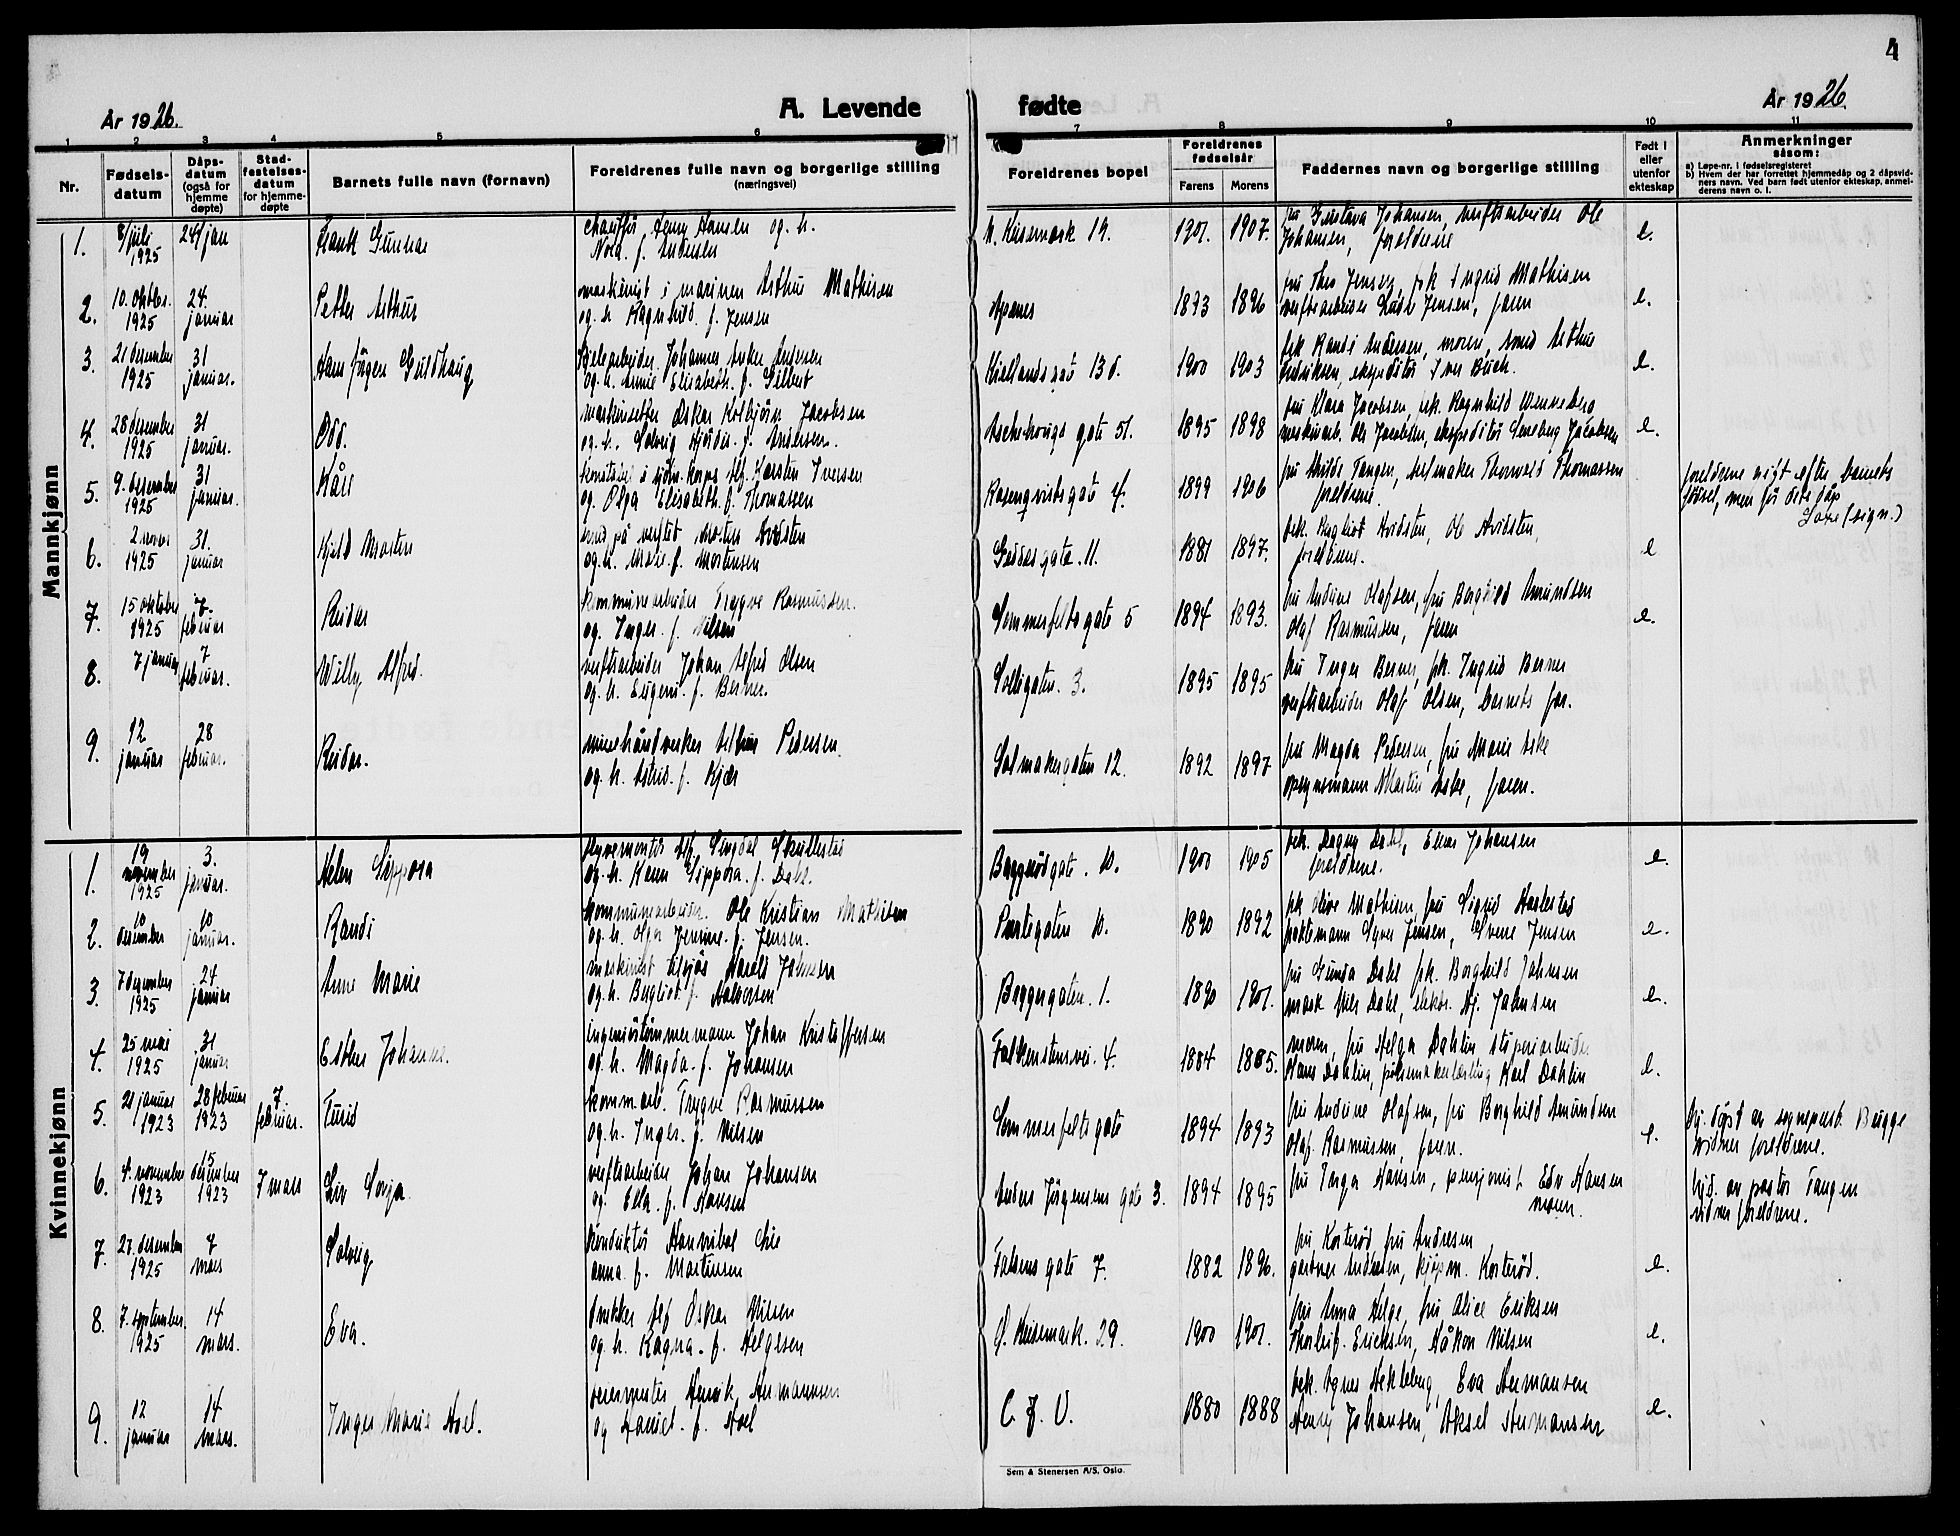 4
År 1926.
A. Levende
fødte
År 1926.
1 2 3 4 5 6
7 8 9 10 11
Nr.
Fødsels-
datum
Dåps-
datum
(også for
hjemme
døpte)
Stad-
festelses-
datum
for hjemme-
døpte
Barnets fulle navn (fornavn)
Foreldrenes fulle navn og borgerlige stilling
(næringsvei)
Foreldrenes bopel
Foreldrenes
fødselsår
Farens
Morens
Faddernes navn og borgerlige stilling
Født i
eller
utenfor
ekteskap
Anmerkninger
såsom:
a) Løpe-nr. i fødselsregisteret
b) Hvem der har forrettet hjemmedåp og 2 dåpsvid-
ners navn. Ved barn født utenfor ekteskap, anmel-
derens navn o. l.
Mannkjønn
1. 8/juli 1925 24/jan Gunnar
chauffør, Hansen og h.
Nora f. Andersen
19. 1901. 1907.
fru Gustava Johansen, verftsarbeider Ole
Johansen, foreldrene
e.
2. 10. oktbr. 1925 24. januar Petter Arthur
maskinist i marinen Arthur Mathisen
og h. Ragnhild f. Jensen
Apenes 1893 1896
fru Jensen, frk Ingrid Mathisen
verftsarbeider Jensen, faren
e.
3. 21 desember 1925 31 januar. Jørgen Guldhaug
Johannes Anker Andersen
og h. Annie Elisabeth f. Gilbert
13 d. 1900 1903
frk Randi Andersen, moren, smed Arthur
ekspeditør Iver Buch.
e.
4. 28 desember 1925 31 januar. Odd.
maskinsetter Oskar Kolbjørn Jacobsen
og h. Solveig f. Andersen.
Aschehougs gate 51. 1895 1898
fru Klara Jacobsen, frk. Ragnhild Wenneberg
Ole Jacobsen, ekspeditør Jacobsen
e.
5. 9. desember 1925 31 januar. Kåre
Karsten Iversen
og Olga Elisabeth f. Thomassen
Rosenqvistsgate 4. 1899 1906
fru Tangen, seilmaker Thorvald Thomassen
foreldrene.
foreldrene gift efter barnets
fødsel, men før dets dåp
(sign.)
6. 2 novbr 1925 31. januar Kjeld Morten
smed på verftet Morten Arvidsten
og h. Marie f. Mortensen
11. 1881 1897.
frk. Raghild Arvidsten, Ole Arvidsten,
foreldrene.
e
7. 15 oktober 1925 7. februar Reidar
kommunearbeider Trygve Rasmussen.
og Inger f. Nilsen
Sommerfeltsgate 5 1894 1893.
fru Andrine Olafsen, fru Borghild Amundsen
Olaf Rasmussen, faren
e.
8. 7 januar 7 februar. Willy Alfred.
verftsarbeider Johan Alfred Olsen
og h. Eugenie f. Berner.
Solligaten. 3. 1895 1895
fru Inger Berner, frk. Ingrid Berner
verftsarbeider Olaf Olsen, barnets far.
9. 12 januar 28 februar. Reidar.
minehåndverker Arthur Pedersen.
og h. Astrid f. Kjær
Salmakergaten 12. 1892 1897
fru Magda Pedersen, fru Marie Aske
opsynsmann Martin Aske, faren.
Kvinnekjønn
1. 19 november 1925 3. januar. Helen Sippora
og h. Karen Sippora f. Dahl.
10. 1900 1905
frk. Dagny Dahl, Einar Johansen
foreldrene.
e.
2. 10 desember 10 januar. Randi
kommunearbeider. Ole Kristian Mathisen
og h. Olga Jensine f. Jensen.
10. 1890 1892
frk Olive Mathisen, fru Sigrid
Syver Jensen, Jensen
e.
3. 7 desember 1925 24. januar Anne Marie
maskinist tilsjøs Harald Johnsen
og h. Bergliot f. Halvorsen
Bryggegaten. 1. 1890 1901.
fru Gunda Dahl frk. Borghild Johnsen
Nils Dahl, elektr. Hj. Johnsen
e.
4. 25 mai 1925 31 januar Esther Johanne.
ingeniørtømmermann Johan Kristoffersen
og h. Magda f. Johansen
Falkenstensvei. 4. 1884 1885.
moren, fru Helga Dahlin, støperiarbeider
Hans Dahlin, pølsemakerlærling Karl Dahlin
e.
5. 21 januar 1923 28 februar 1923 7. februar. Turid
kommarb. Trygve Rasmussen
og h. Inger f. Nilsen
Sommerfeltsgate 1894 1893
fru Andrine Olafsen, fru Borghild Amundsen
Olaf Rasmussen, faren.
e.
Hj. døpt av sogneprest Bugge
vidner foreldrene.
6. 4. november 1923 15 desember 1923 7 mars Liv Sonja.
verftsarbeider Johan Johansen
og Ella f. Hansen
Anders Jørgensens gate 3. 1894 1895
fru Inga Hansen, pensjonist Edv Hansen
moren.
hjd. av pastor Tangen
vidner foreldrene.
7. 27. desember 1925 7 mars Solveig
konduktør Hannibal Lie
anna f. Martinsen
Falsens gate 7. 1882 1896.
fru Korterød fru Andresen
gartner Andresen, kjøpm. Korterød.
e.
8. 7. september 1925 14 mars. Eva.
snekker Alf Oskar Nilsen
og h. Ragna f. Helgesen
29. 1900 1901.
fru Anna Helge, fru Alice Eriksen
Thorleif Ericksen, Håkon Nilsen
e.
9. 12 januar 14 mars. Inger Marie Hoel.
veiermester Henrik Hermansen
og f. Hoel
C. J. V. 1880 1888
frk. Agnes Hekleberg, Eva Hermansen
Henry Johansen, Aksel Hermansen
e.
Sem & Stenersen A/S, Oslo.